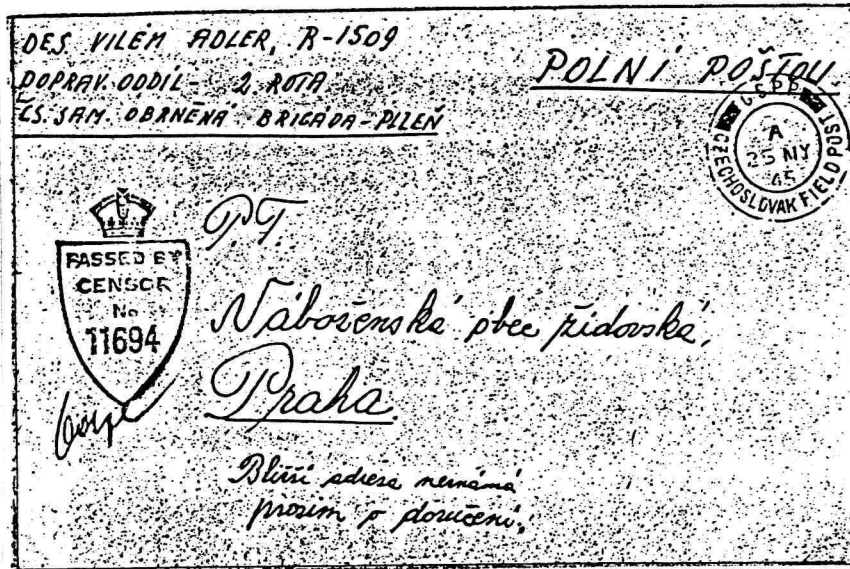 DES. VILÉM ADLER, R-1509
DOPRAV. ODDÍL - 2. ROTA
ČS. SAM. OBRNĚNÁ BRIGÁDA - PLZEŇ
POLNÍ POŠTOU
CSPP
A
25 MY
45
CZECHOSLOVAK FIELD POST
PASSED BY
CENSOR
No
11694
P.T.
Náboženská obec židovská,
Praha.
Bližší adresa neznámá
prosím o doručení.